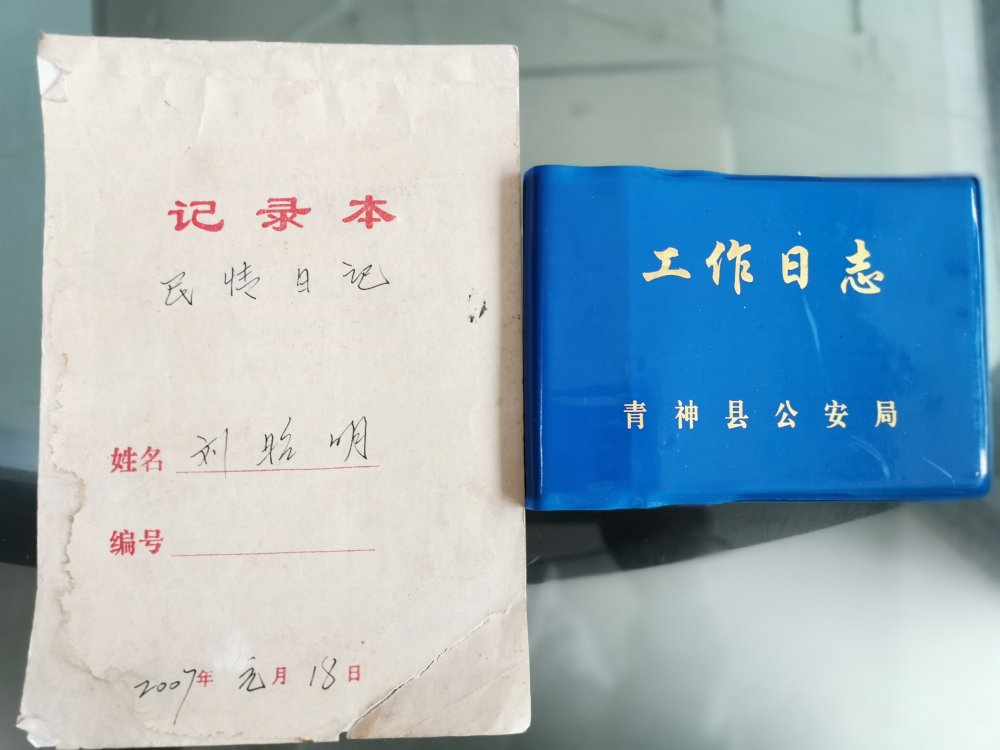 记录本
民情日记
姓名 刘昭明
编号
2007年元月18日
工作日志
青神县公安局